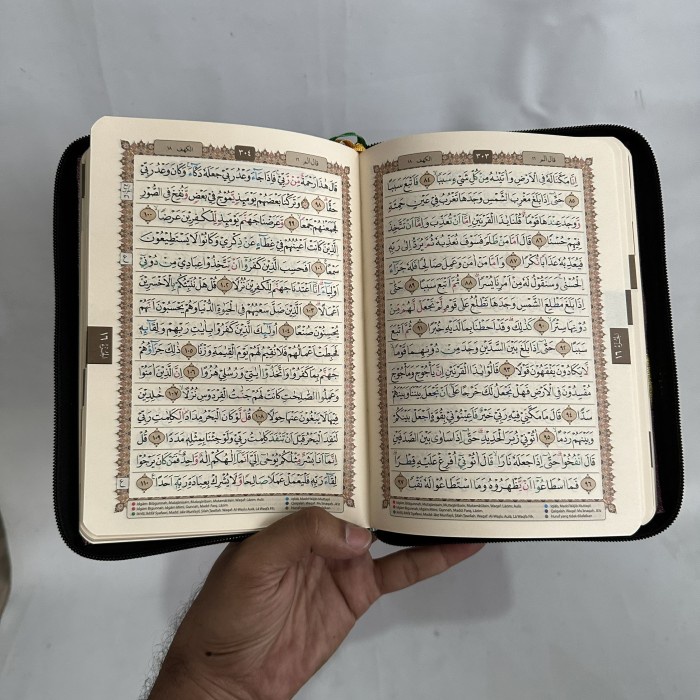 قال ألم ١٦ ٣٠٣ الكهف ١٨
إِنَّا مَكَّنَّا لَهُ فِي الْأَرْضِ وَآتَيْنَاهُ مِنْ كُلِّ شَيْءٍ سَبَبًا ٨٤ فَأَتْبَعَ سَبَبًا
٨٥ حَتَّىٰ إِذَا بَلَغَ مَغْرِبَ الشَّمْسِ وَجَدَهَا تَغْرُبُ فِي عَيْنٍ حَمِئَةٍ
وَوَجَدَ عِنْدَهَا قَوْمًا قُلْنَا يَا ذَا الْقَرْنَيْنِ إِمَّا أَنْ تُعَذِّبَ وَإِمَّا أَنْ تَتَّخِذَ
فِيهِمْ حُسْنًا ٨٦ قَالَ أَمَّا مَنْ ظَلَمَ فَسَوْفَ نُعَذِّبُهُ ثُمَّ يُرَدُّ إِلَىٰ رَبِّهِ
فَيُعَذِّبُهُ عَذَابًا نُكْرًا ٨٧ وَأَمَّا مَنْ آمَنَ وَعَمِلَ صَالِحًا فَلَهُ جَزَاءً
الْحُسْنَىٰ وَسَنَقُولُ لَهُ مِنْ أَمْرِنَا يُسْرًا ٨٨ ثُمَّ أَتْبَعَ سَبَبًا ٨٩ حَتَّىٰ
إِذَا بَلَغَ مَطْلِعَ الشَّمْسِ وَجَدَهَا تَطْلُعُ عَلَىٰ قَوْمٍ لَمْ نَجْعَلْ لَهُمْ مِنْ
دُونِهَا سِتْرًا ٩٠ كَذَٰلِكَ وَقَدْ أَحَطْنَا بِمَا لَدَيْهِ خُبْرًا ٩١ ثُمَّ أَتْبَعَ
سَبَبًا ٩٢ حَتَّىٰ إِذَا بَلَغَ بَيْنَ السَّدَّيْنِ وَجَدَ مِنْ دُونِهِمَا قَوْمًا
لَا يَكَادُونَ يَفْقَهُونَ قَوْلًا ٩٣ قَالُوا يَا ذَا الْقَرْنَيْنِ إِنَّ يَأْجُوجَ وَمَأْجُوجَ
مُفْسِدُونَ فِي الْأَرْضِ فَهَلْ نَجْعَلُ لَكَ خَرْجًا عَلَىٰ أَنْ تَجْعَلَ بَيْنَنَا وَبَيْنَهُمْ
سَدًّا ٩٤ قَالَ مَا مَكَّنِّي فِيهِ رَبِّي خَيْرٌ فَأَعِينُونِي بِقُوَّةٍ أَجْعَلْ بَيْنَكُمْ
وَبَيْنَهُمْ رَدْمًا ٩٥ آتُونِي زُبَرَ الْحَدِيدِ حَتَّىٰ إِذَا سَاوَىٰ بَيْنَ الصَّدَفَيْنِ
قَالَ انْفُخُوا حَتَّىٰ إِذَا جَعَلَهُ نَارًا قَالَ آتُونِي أُفْرِغْ عَلَيْهِ قِطْرًا
٩٦ فَمَا اسْطَاعُوا أَنْ يَظْهَرُوهُ وَمَا اسْتَطَاعُوا لَهُ نَقْبًا ٩٧
الكهف ١٨ ٣٠٤ قال ألم ١٦
قَالَ هَٰذَا رَحْمَةٌ مِنْ رَبِّي فَإِذَا جَاءَ وَعْدُ رَبِّي جَعَلَهُ دَكَّاءَ وَكَانَ وَعْدُ رَبِّي
حَقًّا ٩٨ وَتَرَكْنَا بَعْضَهُمْ يَوْمَئِذٍ يَمُوجُ فِي بَعْضٍ وَنُفِخَ فِي الصُّورِ
فَجَمَعْنَاهُمْ جَمْعًا ٩٩ وَعَرَضْنَا جَهَنَّمَ يَوْمَئِذٍ لِلْكَافِرِينَ عَرْضًا ١٠٠
الَّذِينَ كَانَتْ أَعْيُنُهُمْ فِي غِطَاءٍ عَنْ ذِكْرِي وَكَانُوا لَا يَسْتَطِيعُونَ
سَمْعًا ١٠١ أَفَحَسِبَ الَّذِينَ كَفَرُوا أَنْ يَتَّخِذُوا عِبَادِي مِنْ دُونِي
أَوْلِيَاءَ إِنَّا أَعْتَدْنَا جَهَنَّمَ لِلْكَافِرِينَ نُزُلًا ١٠٢ قُلْ هَلْ نُنَبِّئُكُمْ بِالْأَخْسَرِينَ
أَعْمَالًا ١٠٣ الَّذِينَ ضَلَّ سَعْيُهُمْ فِي الْحَيَاةِ الدُّنْيَا وَهُمْ يَحْسَبُونَ أَنَّهُمْ
يُحْسِنُونَ صُنْعًا ١٠٤ أُولَٰئِكَ الَّذِينَ كَفَرُوا بِآيَاتِ رَبِّهِمْ وَلِقَائِهِ
فَحَبِطَتْ أَعْمَالُهُمْ فَلَا نُقِيمُ لَهُمْ يَوْمَ الْقِيَامَةِ وَزْنًا ١٠٥ ذَٰلِكَ جَزَاؤُهُمْ
جَهَنَّمُ بِمَا كَفَرُوا وَاتَّخَذُوا آيَاتِي وَرُسُلِي هُزُوًا ١٠٦ إِنَّ الَّذِينَ آمَنُوا
وَعَمِلُوا الصَّالِحَاتِ كَانَتْ لَهُمْ جَنَّاتُ الْفِرْدَوْسِ نُزُلًا ١٠٧ خَالِدِينَ
فِيهَا لَا يَبْغُونَ عَنْهَا حِوَلًا ١٠٨ قُلْ لَوْ كَانَ الْبَحْرُ مِدَادًا لِكَلِمَاتِ رَبِّي
لَنَفِدَ الْبَحْرُ قَبْلَ أَنْ تَنْفَدَ كَلِمَاتُ رَبِّي وَلَوْ جِئْنَا بِمِثْلِهِ مَدَدًا ١٠٩ قُلْ
إِنَّمَا أَنَا بَشَرٌ مِثْلُكُمْ يُوحَىٰ إِلَيَّ أَنَّمَا إِلَٰهُكُمْ إِلَٰهٌ وَاحِدٌ فَمَنْ كَانَ يَرْجُو
لِقَاءَ رَبِّهِ فَلْيَعْمَلْ عَمَلًا صَالِحًا وَلَا يُشْرِكْ بِعِبَادَةِ رَبِّهِ أَحَدًا ١١٠